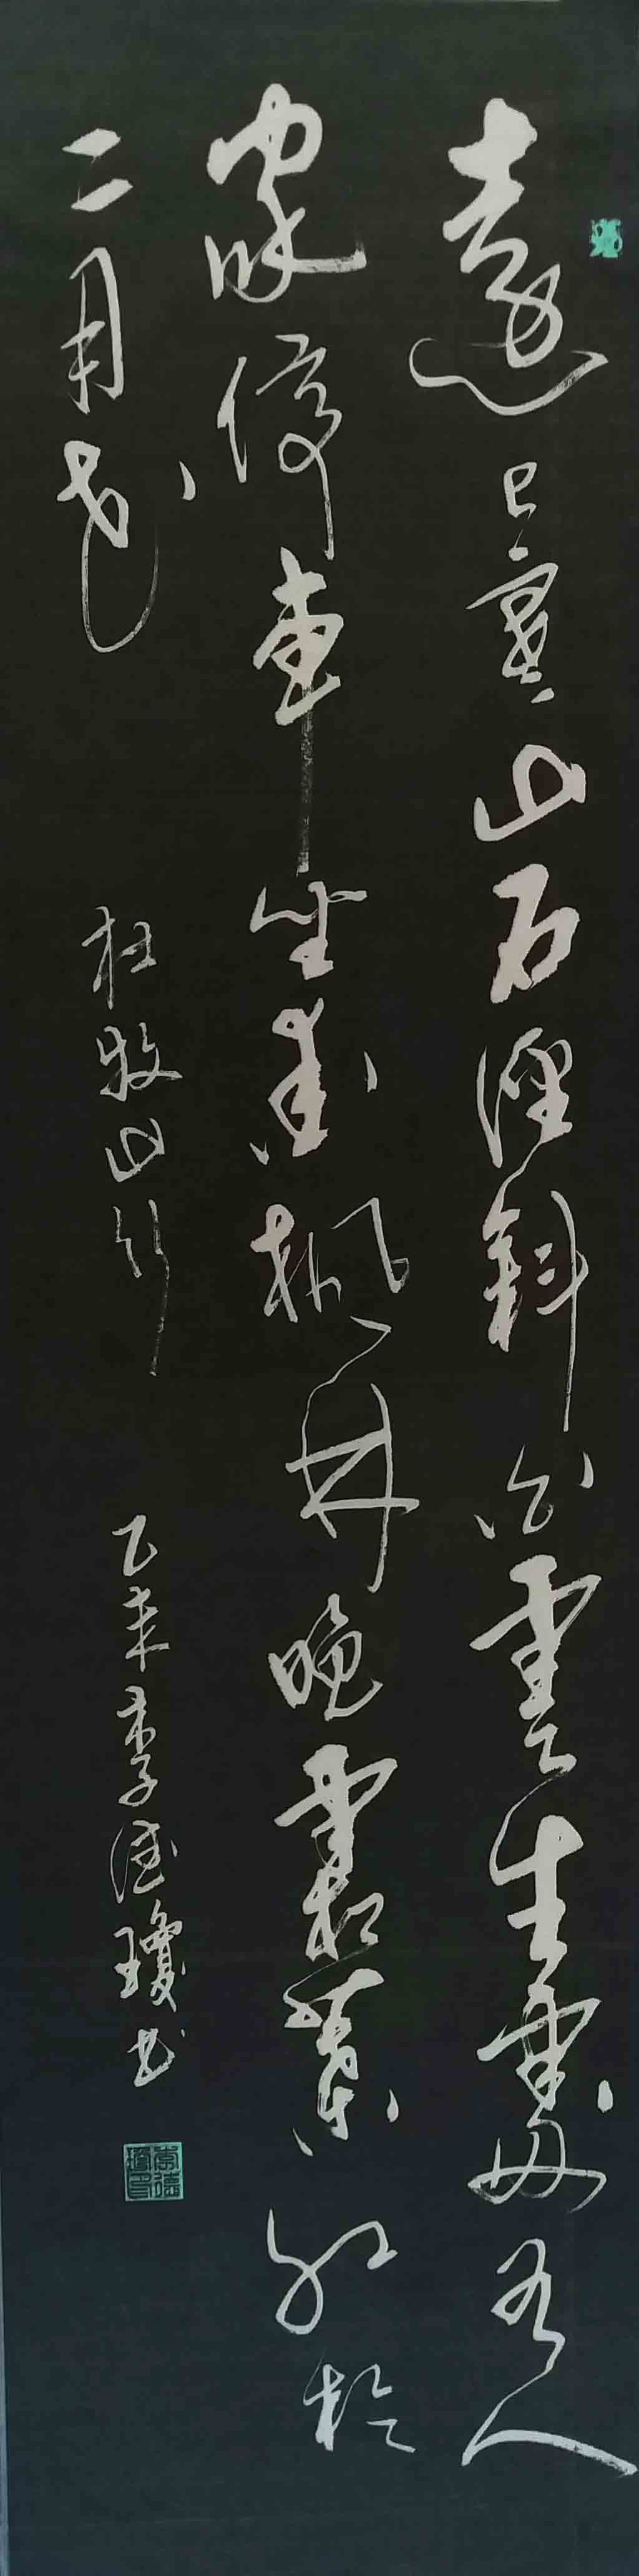 遠上寒山石徑斜白雲生處有人
家停車坐愛楓林晚霜葉紅於
二月花
杜牧山行
乙未李德瓊书
李德瓊印